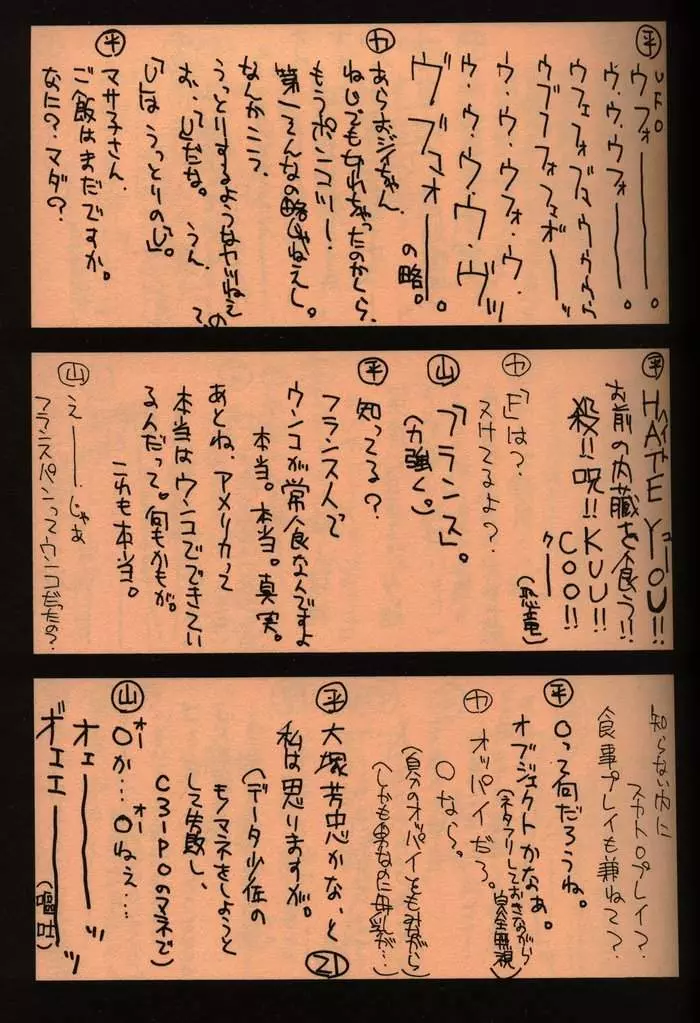 平
UFO
ウフォーーー。
ウ・ウ・ウフォーーー。
ウフェフォブマウウウウ
ウブブフォフェボーーッ
ウ・ウ・ウフォ・ウ・
ウ・ウ・ウ・ウ・ヴッ
ヴブマォーー。
の略。
カ
あらおジイちゃん、
ねじでもなれちゃったのかしら、
もうポンコツー!
第一そんなの略じゃねえし。
なんかこう、
うっとりするようなヤツねえの
お、って
だな。 うん。
「U」は うっとりの「U」。
平
マサ子さん、
ご飯はまだですか。
なに?マダ?
平
HATE YOU!!
ヘイト ユー
お前の内臓を食う!!
殺!!呪!!KUU!!
COO!!
クー
(恐竜)
カ
「F」は?
ヌけてるよ?
山
「フランス」。
(力強く。)
平
知ってる?
フランス人て
ウンコが常食なんですよ
本当。本当。真実。
あとね、アメリカって
本当はウンコでできてい
るんだって。何もかもが。
これも本当。
山
えー…じゃあ
フランスパンってウンコだったの?
知らない内に
スカトロプレイ?
食事プレイも兼ねて?
平
Oって何だろうね。
オブジェクトかなぁ。
(ネタフリしておきながら
完全無視)
カ
オッパイだろ。
Oなら。
(自分のオッパイをもみながら
(しかも男なのに母乳が…)
平
大塚芳忠かな、と
私は思りますが。
(データ少佐の
モノマネをしようと
して失敗し、
C3-POのマネで)
山
Oか…Oねぇ…
オー オー
オェーーーッ
ボエエーーーッ
(嘔吐)
21